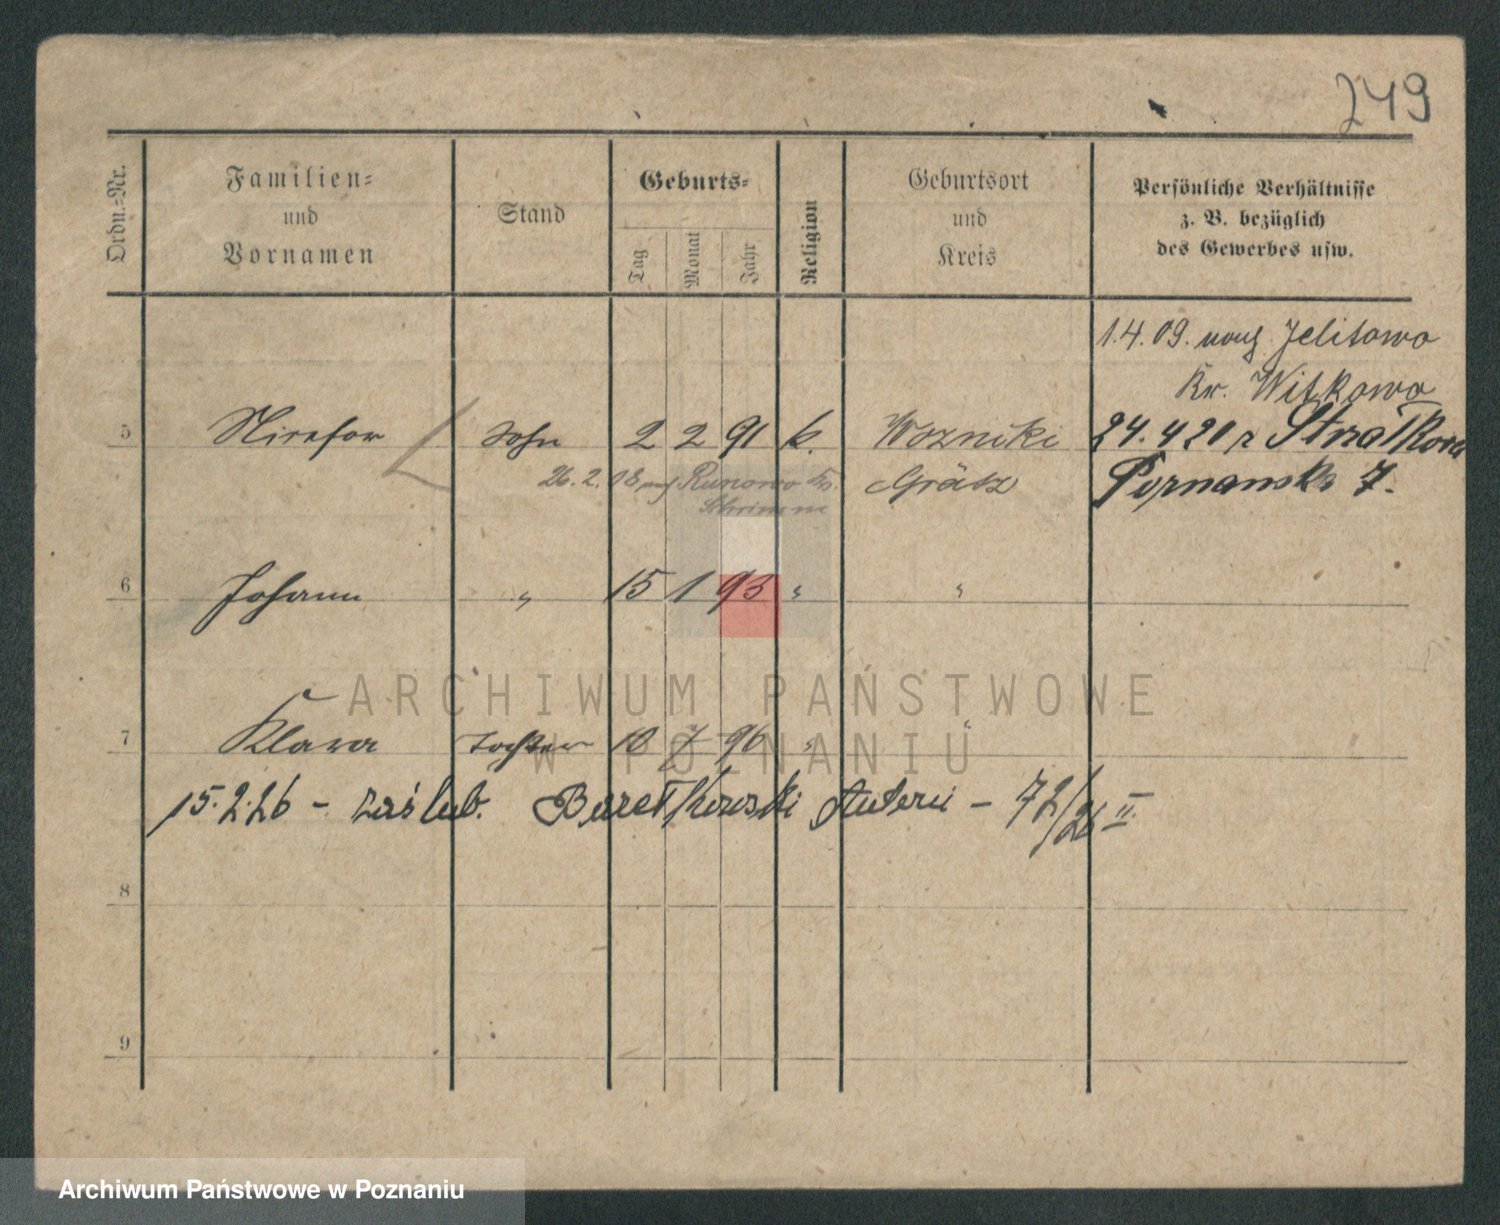 249
Ordn.-Nr.
Familien-
und
Vornamen
Stand
Geburts-
Tag
Monat
Jahr
Religion
Geburtsort
und
Kreis
Persönliche Verhältnisse
z. B. bezüglich
des Gewerbes usw.
1.4.09. nach Jelitowo
Kr. Witkowo
5 Sohn 2 2 91 k. Wozniki 24.4 20 z
26. 2. 08 auf Runowo Kr. Grätz
Schrimm
6 Johann " 15 1 93 " "
7 Klara Tochter 10 7 96 " "
15.2.26 - zaślub. Antoni - 72/26 II.
8
9
ARCHIWUM PAŃSTWOWE
W POZNANIU
Archiwum Państwowe w Poznaniu